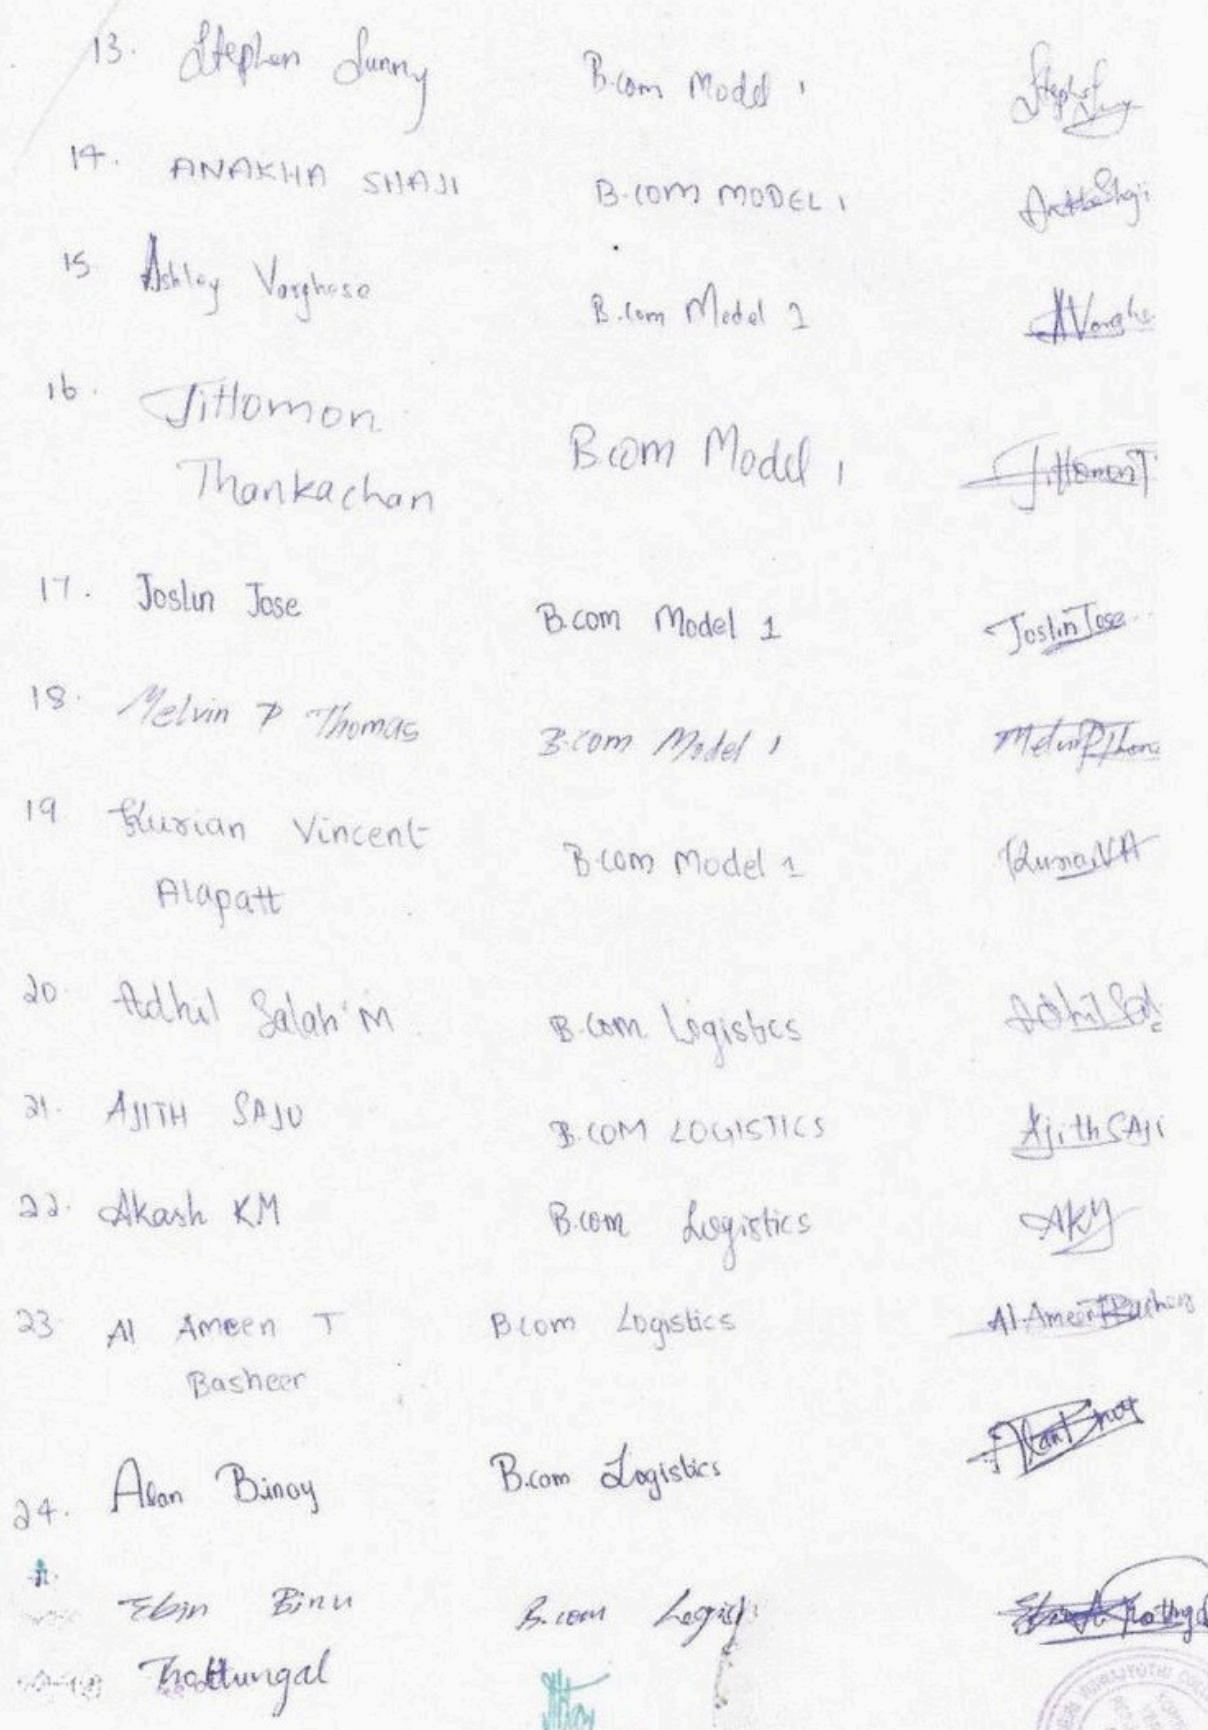 13. Stephen Sunny B.com Model 1 Stephen Sunny
14. ANAKHA SHAJI B.COM MODEL 1 Anakha Shaji
15 Ashley Varghese B.com Model 1 A Varghe
16. Jittomon B.com Model 1 Jittomon T
Thankachan
17. Joslin Jose B.com Model 1 Joslin Jose
18. Melvin P Thomas B.com Model 1 Melvin P Thom
19 Kurian Vincent B.com Model 1 Kurian VA
Alapatt
20. Adhil Salah M B.com Logistics Adhil Sal
21. AJITH SAJU B.COM LOGISTICS Ajith SAJI
22. Akash KM B.com Logistics AKM
23 Al Ameen T B.com Logistics Al Ameen T Basheer
Basheer
24. Alan Binoy B.com Logistics Alan Binoy
Ebin Binu B.com
Thottungal